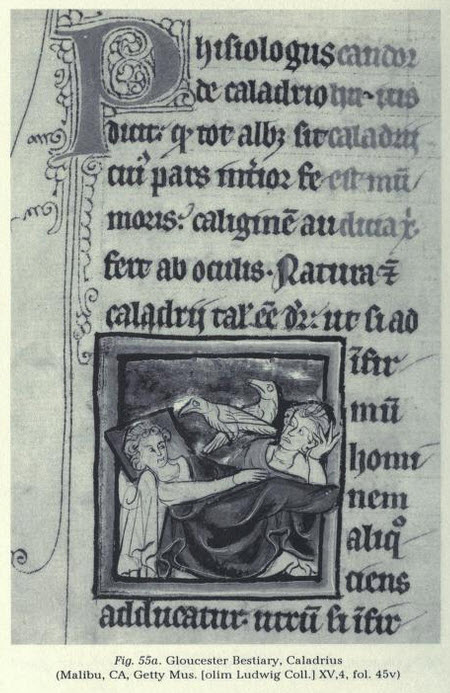 Phisiologus candor
de caladrio
dicit: ꝙ tot albꝫ sit caladrij
cui' pars inťior fe est mū
moris: caliginē au
fert ab oculis. Natura
caladrij tal' eē dr̄: ut si ad
īfir
mū
homi
nem
aliqͦ
tiens
adducatur. utrū si īfir
Fig. 55a. Gloucester Bestiary, Caladrius
(Malibu, CA, Getty Mus. [olim Ludwig Coll.] XV,4, fol. 45v)